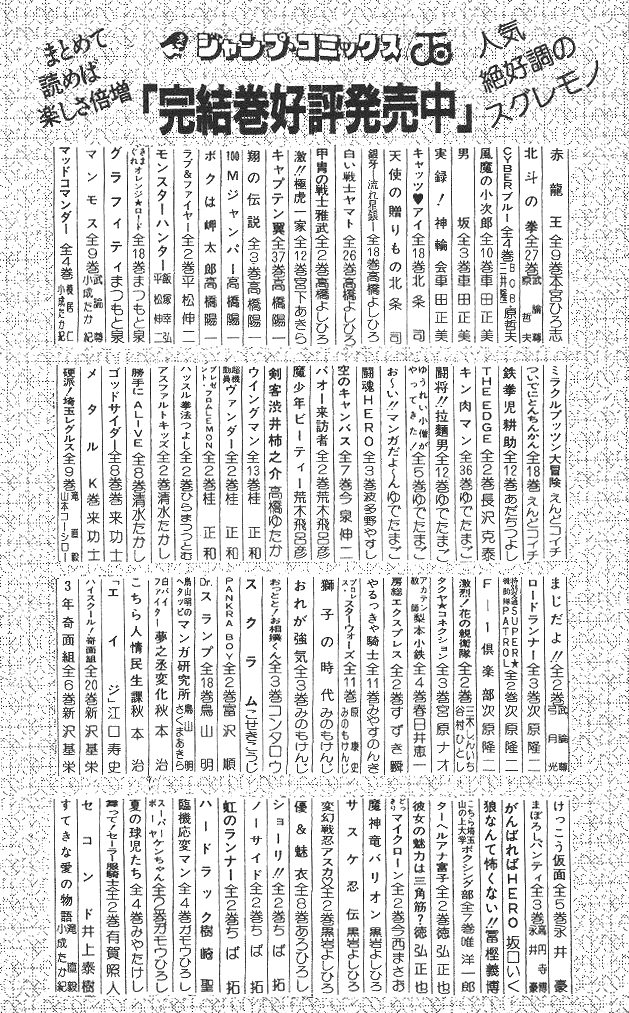 まとめて
読めば
楽しさ倍増
ジャンプ・コミックス
人気
絶好調の
スグレモノ
「完結巻好評発売中」
赤龍王全9巻本宮ひろ志
北斗の拳全27巻武論尊 原哲夫
CYBERブルー全4巻BOB 三井隆一 原哲夫
風魔の小次郎全10巻車田正美
男坂全3巻車田正美
実録!神輪会車田正美
キャッツ♥アイ全18巻北条司
天使の贈りもの北条司
銀牙-流れ星銀-全18巻高橋よしひろ
白い戦士ヤマト全26巻高橋よしひろ
甲冑の戦士雅武全2巻高橋よしひろ
激!!極虎一家全12巻宮下あきら
キャプテン翼全37巻高橋陽一
翔の伝説全3巻高橋陽一
100Mジャンパー高橋陽一
ボクは岬太郎高橋陽一
ラブ&ファイヤー全2巻平松伸二
モンスターハンター飯塚幸弘 平松伸二
きまぐれオレンジ★ロード全18巻まつもと泉
グラフィティまつもと泉
マンモス全9巻武論尊 小成たか紀
マッドコマンダー全4巻榎居仁 小成たか紀
ミラクルプッツン大冒険えんどコイチ
ついでにとんちんかん全18巻えんどコイチ
鉄拳児耕助全12巻あだちつよし
THE EDGE全2巻長沢克泰
キン肉マン全36巻ゆでたまご
闘将!!拉麵男全12巻ゆでたまご
ゆうれい小僧がやってきた!全5巻ゆでたまご
お〜い!!マンガだよ〜んゆでたまご
闘魂HERO全3巻波多野やすし
空のキャンバス全7巻今泉伸二
バオー来訪者全2巻荒木飛呂彦
魔少年ビーティー荒木飛呂彦
剣客渋井柿之介高橋ゆたか
ウイングマン全13巻桂正和
超機動員ヴァンダー全2巻桂正和
プレゼント・フロムLEMON全2巻桂正和
ハッスル拳法つよし全2巻ひらまつつとむ
アスファルトキッズ全2巻清水たかし
勝手にALIVE全8巻清水たかし
ゴッドサイダー全8巻巻来功士
メタルK巻来功士
硬派!埼玉レグルス全9巻滝直毅 山本コーシロー
まじだよ!!全2巻武論尊 弓月光
ロードランナー全3巻次原隆二
特別交通機動隊SUPER★PATROL全2巻次原隆二
F-1倶楽部次原隆二
激烈!花の親衛隊全2巻三木しんいち 谷村ひとし
タクヤ★コネクション全3巻宮原ナオ
アカテン教師梨本小鉄全4巻春日井恵一
房総エクスプレス全2巻すずき瞬
やるっきゃ騎士全11巻みやすのんき
プロレス・スターウォーズ全11巻原康史 みのもけんじ
獅子の時代みのもけんじ
おれが強気全3巻みのもけんじ
おっとと!お相撲くん全3巻コンタロウ
スクラムこせきこうじ
PANKRA BOY全2巻富沢順
Dr.スランプ全18巻鳥山明
鳥山明のヘタッピマンガ研究所鳥山明 さくまあきら
白バイファイター夢之丞変化秋本治
こちら人情民生課秋本治
「エイジ」江口寿史
ハイスクール!奇面組全20巻新沢基栄
3年奇面組全6巻新沢基栄
けっこう仮面全5巻永井豪
まぼろしパンティ全3巻高円寺博 永井豪
がんばればHERO坂口いく
狼なんて怖くない!!冨樫義博
こちら埼玉山の上大学ボクシング部全7巻唯洋一郎
ターヘルアナ富子全2巻徳弘正也
彼女の魅力は三角筋?徳弘正也
どっきりマイクローン全2巻今西まさお
魔神竜バリオン黒岩よしひろ
サスケ忍伝黒岩よしひろ
変幻戦忍アスカ♡全2巻黒岩よしひろ
優&魅衣全8巻あろひろし
ショーリ!!全2巻ちば拓
ノーサイド全2巻ちば拓
虹のランナー全2巻ちば拓
ハードラック樹崎聖
臨機応変マン全4巻ガモウひろし
スーパーボーヤーケンちゃん全2巻ガモウひろし
夏の球児たち全4巻みやたけし
舞って!セーラー服騎士全2巻有賀照人
セコンド井上泰樹
すてきな愛の物語滝直毅 小成たか紀